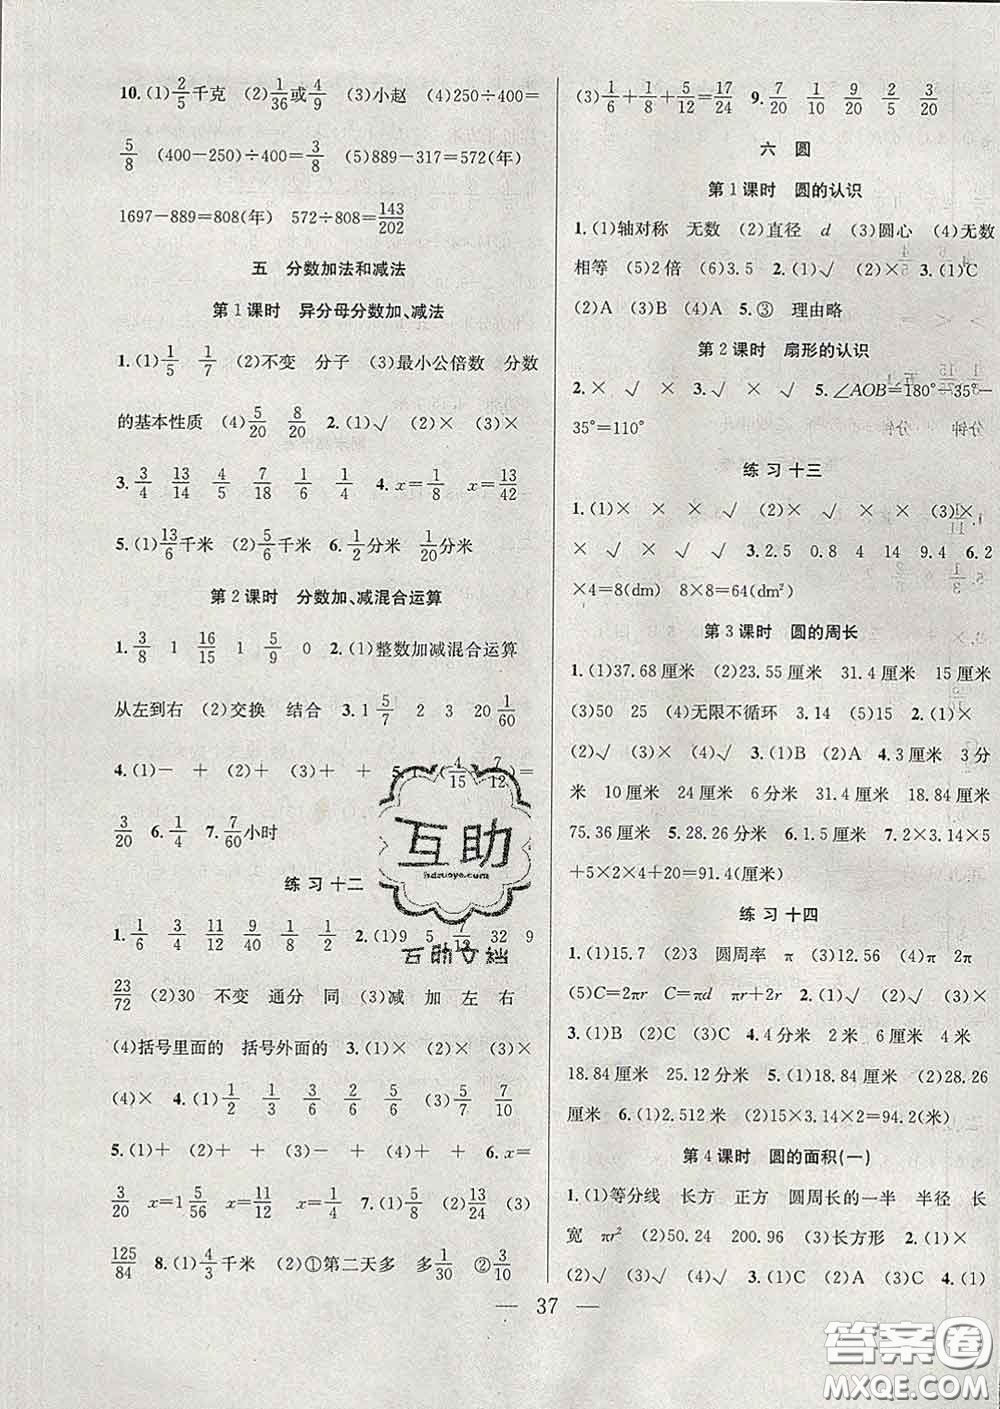 10.(1)2/5千克 (2)1/36或4/9 (3)小赵 (4)250÷400=
5/8 (400-250)÷400=3/8 (5)889-317=572(年)
1697-889=808(年) 572÷808=143/202
五 分数加法和减法
第1课时 异分母分数加、减法
1.(1)1/5 1/7 (2)不变 分子 (3)最小公倍数 分数
的基本性质 (4)5/20 8/20 2.(1)√ (2)× (3)×
3.3/4 13/14 4/5 7/18 1/6 1/4 4.x=1/8 x=13/42
5.(1)13/6千米 (2)5/6千米 6.1/2分米 1/20分米
第2课时 分数加、减混合运算
1.3/8 1 16/15 1 5/9 0 2.(1)整数加减混合运算
从左到右 (2)交换 结合 3.1 5/7 2 3 20 1/60
4.(1)- + (2)+ (3)+ + 5.1-(4/15+7/12)=
3/20 6.1/4 7.7/60小时
练习十二
1.1/6 3/4 11/12 9/40 1/8 1/2 2.(1)9 5 7/12 32 9
23/72 (2)30 不变 通分 同 (3)减 加 左 右
(4)括号里面的 括号外面的 3.(1)× (2)× (3)×
(4)× 4.(1)1/2 1/3 3/6 (2)4/6 5/6 (3)5/7 7/10
5.(1)+ (2)+ + (3)- + (4)+ + 6.x=
3/20 x=1 5/56 x=11/12 x=1/4 7.(1)5/6 (2)13/24 (3)
125/84 8.(1)4/3千米 (2)①第二天多 多1/30 ②3/10
(3)1/6+1/8+5/12=17/24 9.7/20 1/10 9/20 2/5 3/20
六 圆
第1课时 圆的认识
1.(1)轴对称 无数 (2)直径 d (3)圆心 (4)无数
相等 (5)2倍 (6)3.5 2.(1)√ (2)× 3.(1)C
(2)A (3)B 4.(1)A (2)A 5.③ 理由略
第2课时 扇形的认识
2.× √ × 3.√ × √ 5.∠AOB=180°-35°-
35°=110°
练习十三
1.(1)× × × √ (2)× √ × × (3)×
√ × √ √ 3.2.5 0.8 4 14 9.4 6.2
×4=8(dm) 8×8=64(dm²)
第3课时 圆的周长
1.(1)37.68厘米 (2)23.55厘米 31.4厘米 15厘米
(3)50 25 (4)无限不循环 3.14 (5)15 2.(1)×
(2)√ (3)× (4)√ 3.(1)B (2)A 4.3厘米 3分
米 10厘米 24厘米 6分米 31.4厘米 18.84厘米
75.36厘米 5.28.26分米 6.1.5厘米 7.2×3.14×5
+5×2×4+20=91.4(厘米)
练习十四
1.(1)15.7 (2)3 圆周率 π (3)12.56 (4)π 2π
(5)C=2πr C=πd πr+2r 2.(1)√ (2)√ (3)×
3.(1)B (2)C (3)C 4.4分米 2米 6厘米 4米
18.84厘米 25.12分米 5.(1)18.84厘米 (2)28.26
厘米 6.(1)2.512米 (2)15×3.14×2=94.2(米)
第4课时 圆的面积(一)
1.(1)等分线 长方 正方 圆周长的一半 半径 长
宽 πr² (2)50.24 200.96 (3)长方形 2.(1)×
(2)√ (3)√ (4)× 3.(1)C (2)A (3)C 4.(1)
37
互助
hdzuoye.com
互助文档
答案圈
MXQE.COM